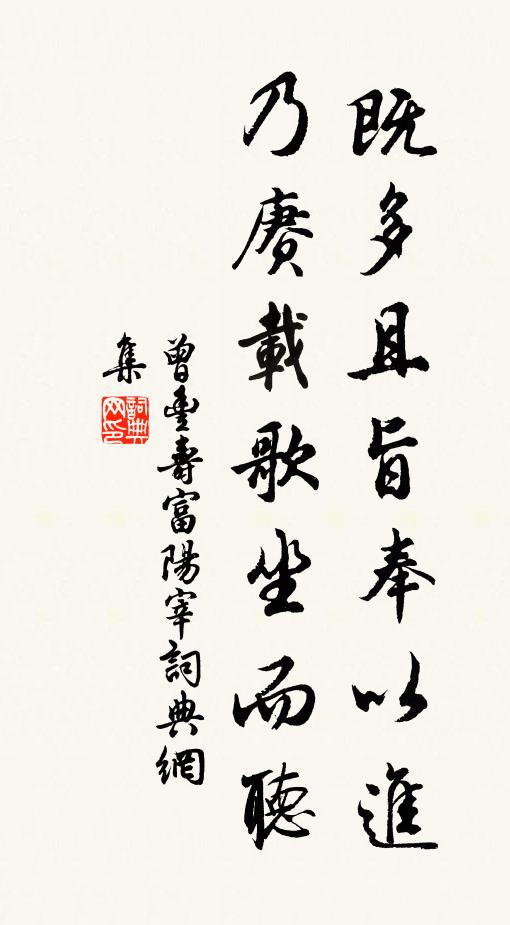 既多且旨奉以進
乃賡載歌坐而聽
曾豐壽富陽宰詞典網
集
詞典网印